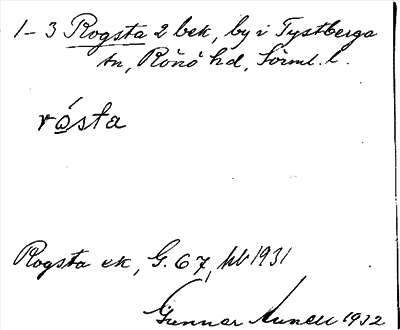 1-3 Rogsta 2 bek, by i Tystberga
sn, Rönö hd, Sörml. l.
rǻsta
Rogsta ek, G. 67, jlb 1931
Gunnar 1932